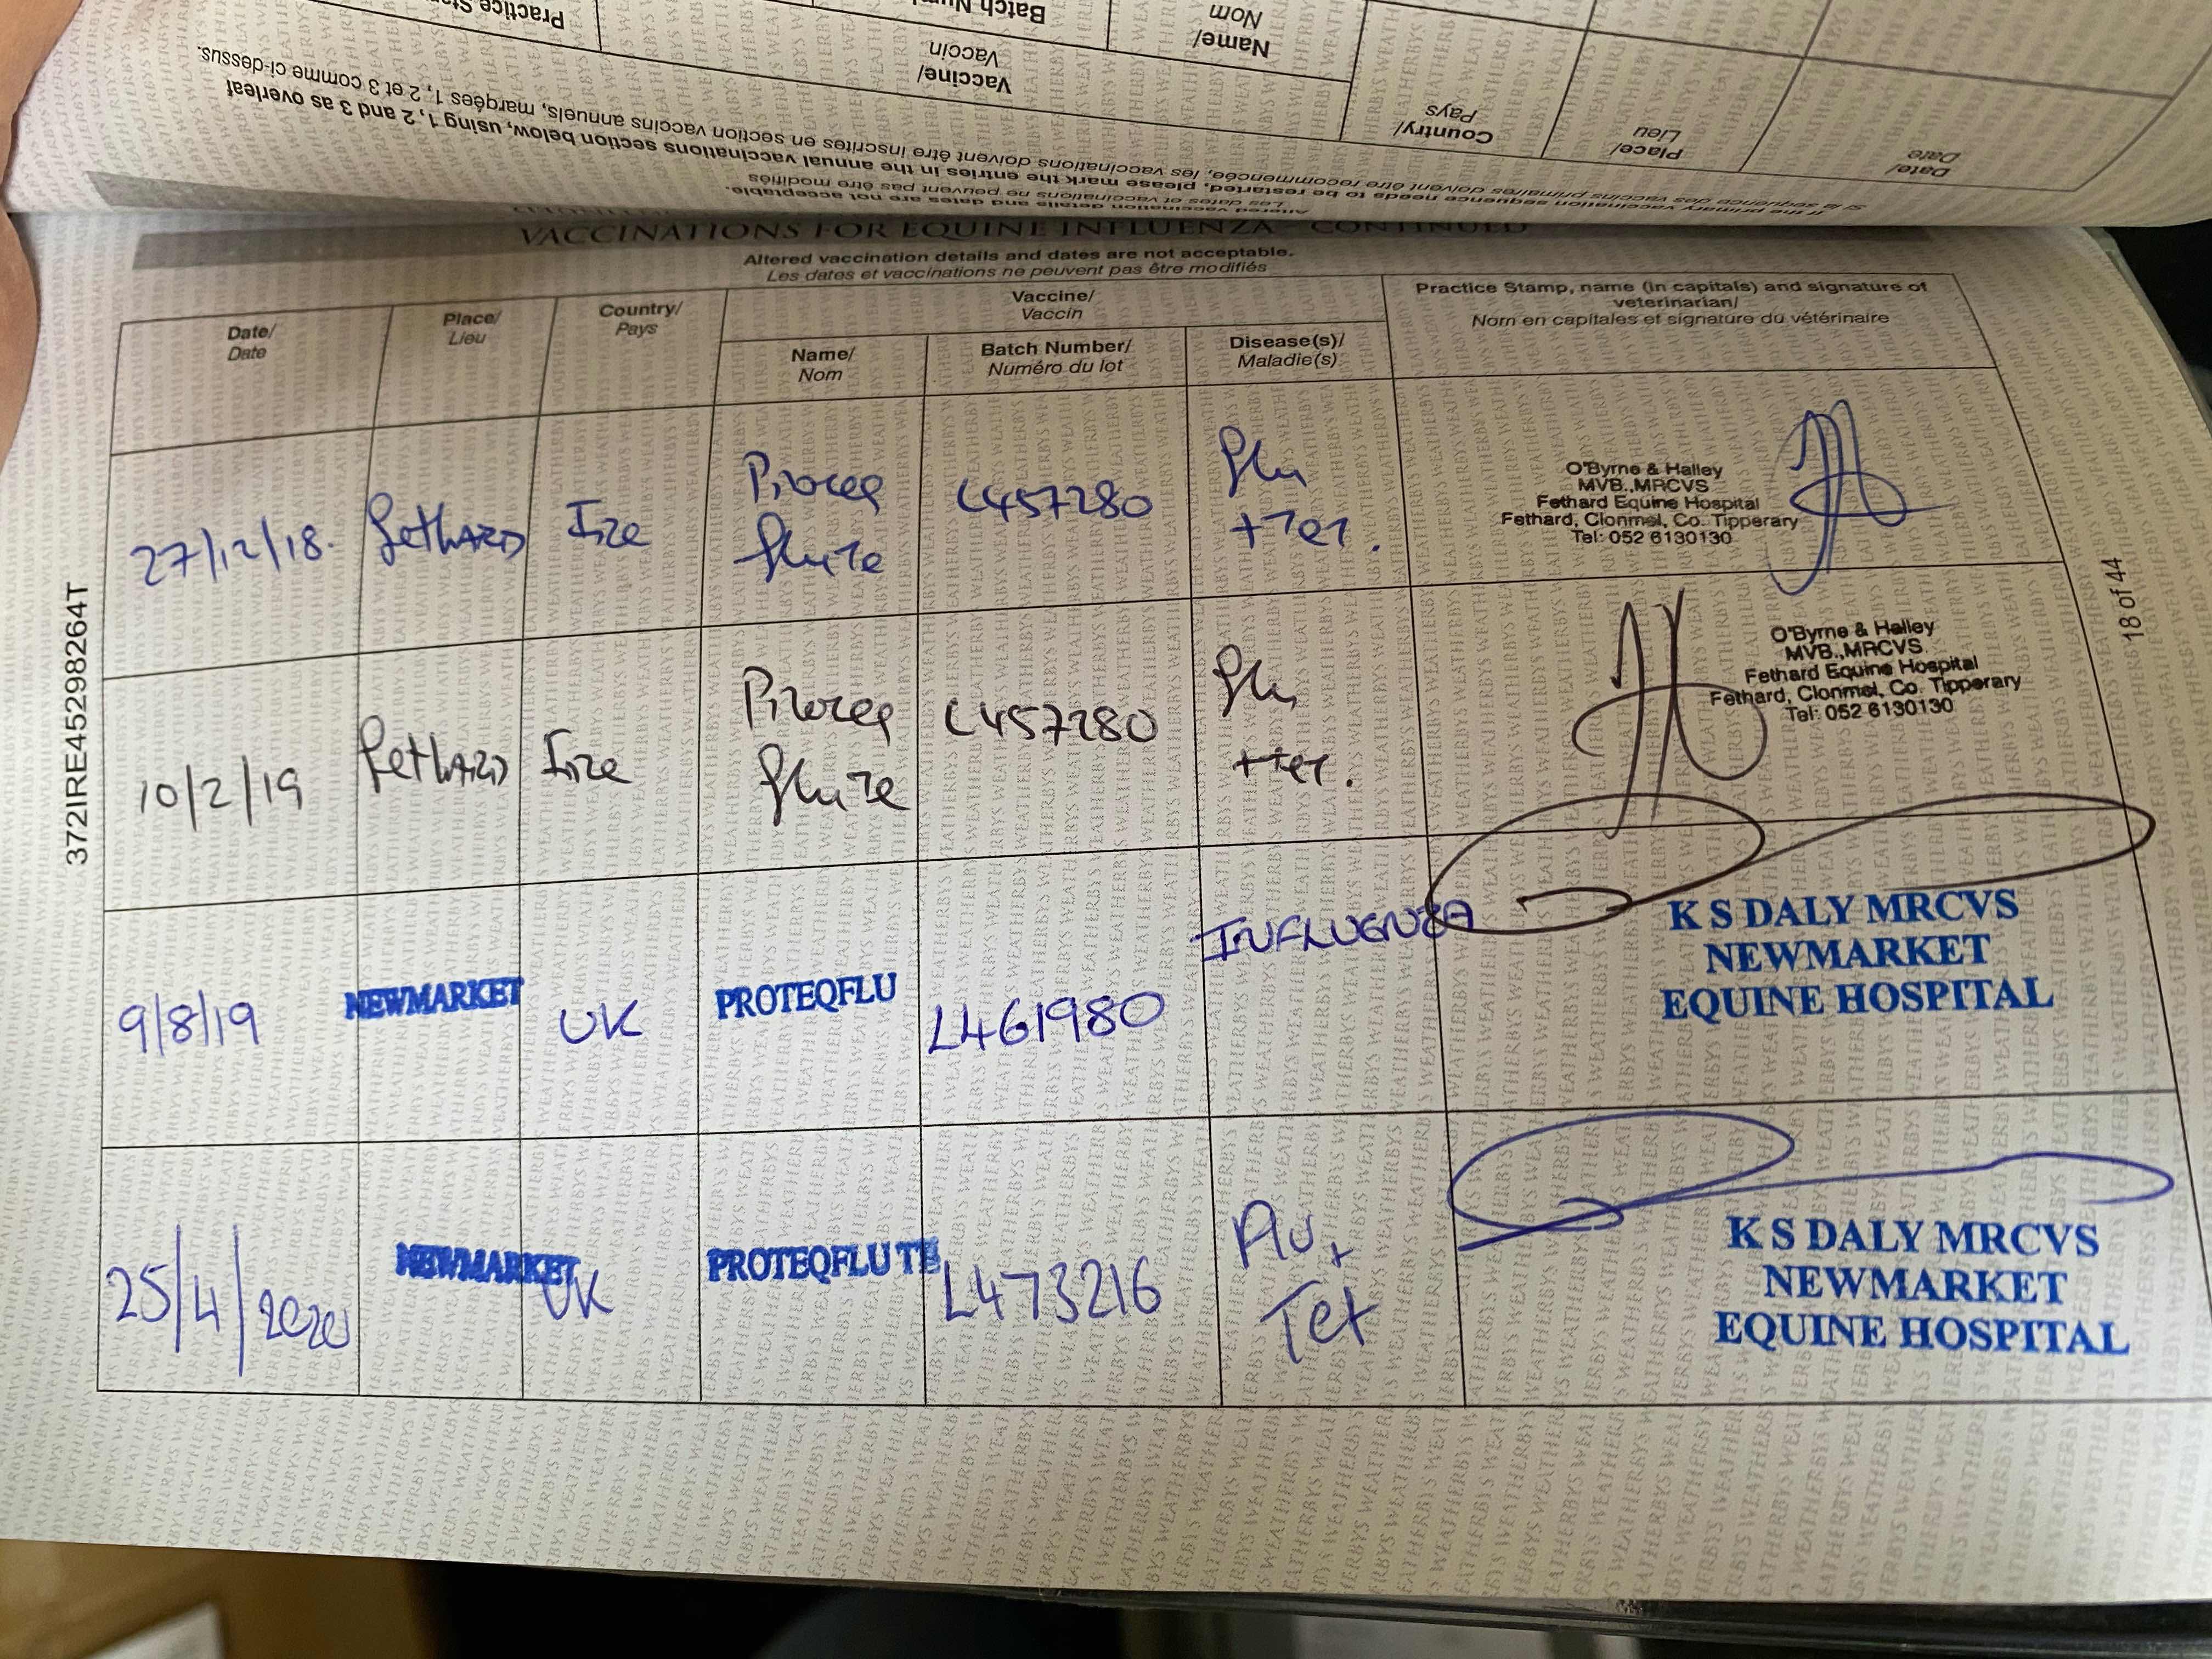 Practice
Batch
Name/
Nom
Vaccine/
Vaccin
Country/
Pays
Place/
Lieu
Date/
Date
If the primary vaccination sequence needs to be restarted, please mark the entries in the annual vaccinations section below, using 1, 2 and 3 as overleaf
Si la séquence des vaccins primaires doivent être recommencée, les vaccinations doivent être inscrites en section vaccins annuels, marqées 1, 2 et 3 comme ci-dessus.
Altered vaccination details and dates are not acceptable.
Les dates et vaccinations ne peuvent pas être modifiés
VACCINATIONS FOR EQUINE INFLUENZA - CONTINUED
Altered vaccination details and dates are not acceptable.
Les dates et vaccinations ne peuvent pas être modifiés
Date/
Date
Place/
Lieu
Country/
Pays
Vaccine/
Vaccin
Name/
Nom
Batch Number/
Numéro du lot
Disease(s)/
Maladie(s)
Practice Stamp, name (in capitals) and signature of
veterinarian/
Nom en capitales et signature du vétérinaire
27/12/18.
Fethard
Ire
Proteq
flu Te
L457280
flu
+Tet.
O'Byrne & Halley
MVB.,MRCVS
Fethard Equine Hospital
Fethard, Clonmel, Co. Tipperary
Tel: 052 6130130
10/2/19
Fethard
Ire
Proteq
flu Te
L457280
flu
+tet.
O'Byrne & Halley
MVB.,MRCVS
Fethard Equine Hospital
Fethard, Clonmel, Co. Tipperary
Tel: 052 6130130
9/8/19
NEWMARKET
UK
PROTEQFLU
L461980
INFLUENZA
K S DALY MRCVS
NEWMARKET
EQUINE HOSPITAL
25/4/2020
NEWMARKET
UK
PROTEQFLU TE
L473216
Flu +
Tet
K S DALY MRCVS
NEWMARKET
EQUINE HOSPITAL
372IRE45298264T
18 of 44